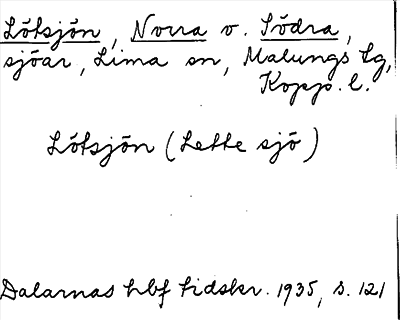 Lötsjön, Norra o. Södra,
sjöar, Lima sn, Malungs tg,
Kopp. l.
Lötsjön (Lette sjö)
Dalarnas hbf tidskr. 1935, s. 121